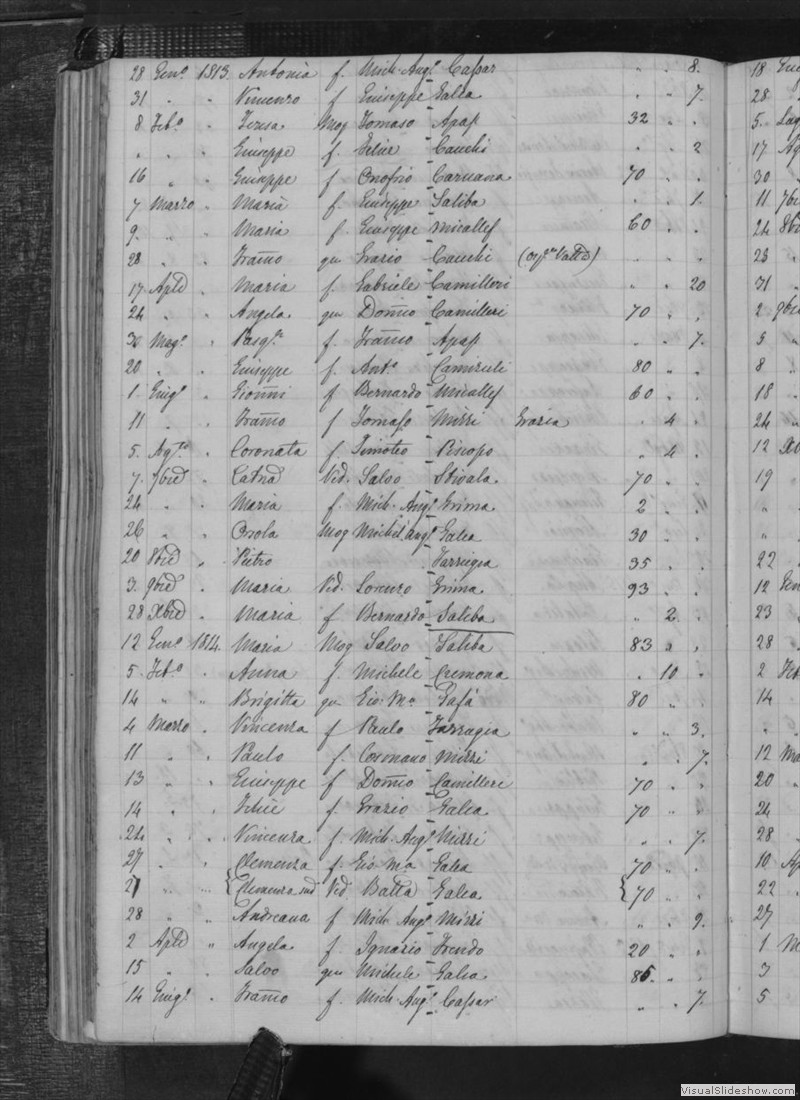 28 Gen.º 1813. Antonia f. Mich: Ang.º Cassar " " 8.
31 " " Vincenzo f Giuseppe Galea " " 7.
8 Feb.º " Teresa Mog Tomaso Apap 32 " "
" " " Giuseppe f. Felice Cauchi " " 2
16 " " Giuseppe f Onofrio Caruana 70 " "
7 Marzo " Maria f. Giuseppe Saliba " " 1.
9. " " Maria f. Giuseppe Micallef 60 " "
28 " " Franco qm Grazio Cauchi " " "
17 Aple " Maria f. Gabriele Camilleri " " 20
24 " " Angela qm Domco Camilleri 70 " "
30 Mag.º " Pasqle f. Franco Apap " " 7.
20 " " Giuseppe f. Anto 80 " "
1 Giug.º " Gionni f Bernardo Micallef 60 " "
11 " " Franco f Tomaso Mizzi Grazia " 4 "
5. Ag.to " Coronata f. Timoteo Piscopo " 4 "
7. 7bre " Catna Vid. Salvo Stivala 70 " "
24 " " Maria f. Mich: Ang.º Grima 2 " "
26 " " Orsola Mog Michel'Ang.º Galea 30 " "
20 8bre " Pietro Farrugia 35 " "
3. 9bre " Maria Vid. Lorenzo Grima 93 " "
28 Xbre " Maria f Bernardo Saliba " 2 "
12 Gen.º 1814. Maria Mog Salvo Saliba 83 " "
5. Feb.º " Anna f. Michele Cremona " 10 "
14 " " Brigitta qm Gio: Ma Gafà 80 " "
4 Marzo " Vincenza f Paulo Farrugia " " 3.
11 " " Paulo f. Coronano Mizzi " " 7.
13 " " Giuseppe f Domco Camilleri 70 " "
14 " " Felice f. Grazio Galea 70 " "
24 " " Vincenza f. Mich: Ang.º Mizzi " " 7.
27 " " Clemenza f. Gio: Ma Galea 70 " "
27 " " Vid Batta Galea 70 " "
28 " " Andreana f Mich: Ang.º Mizzi " " 9.
2 Aple " Angela f. Ignazio Frendo 20 " "
15 " " Salvo qm Michele Galea 85 " "
14 Giug.º " Franco f. Mich: Ang.º Cassar " " 7.
18
28
5.
17
30
11 7bre
24
23
31
2 9bre
5
8
18
24
12
19
22
12
23
28
2
14
12
20
24
28
10
22
27
1
3
5
VisualSlideshow.com